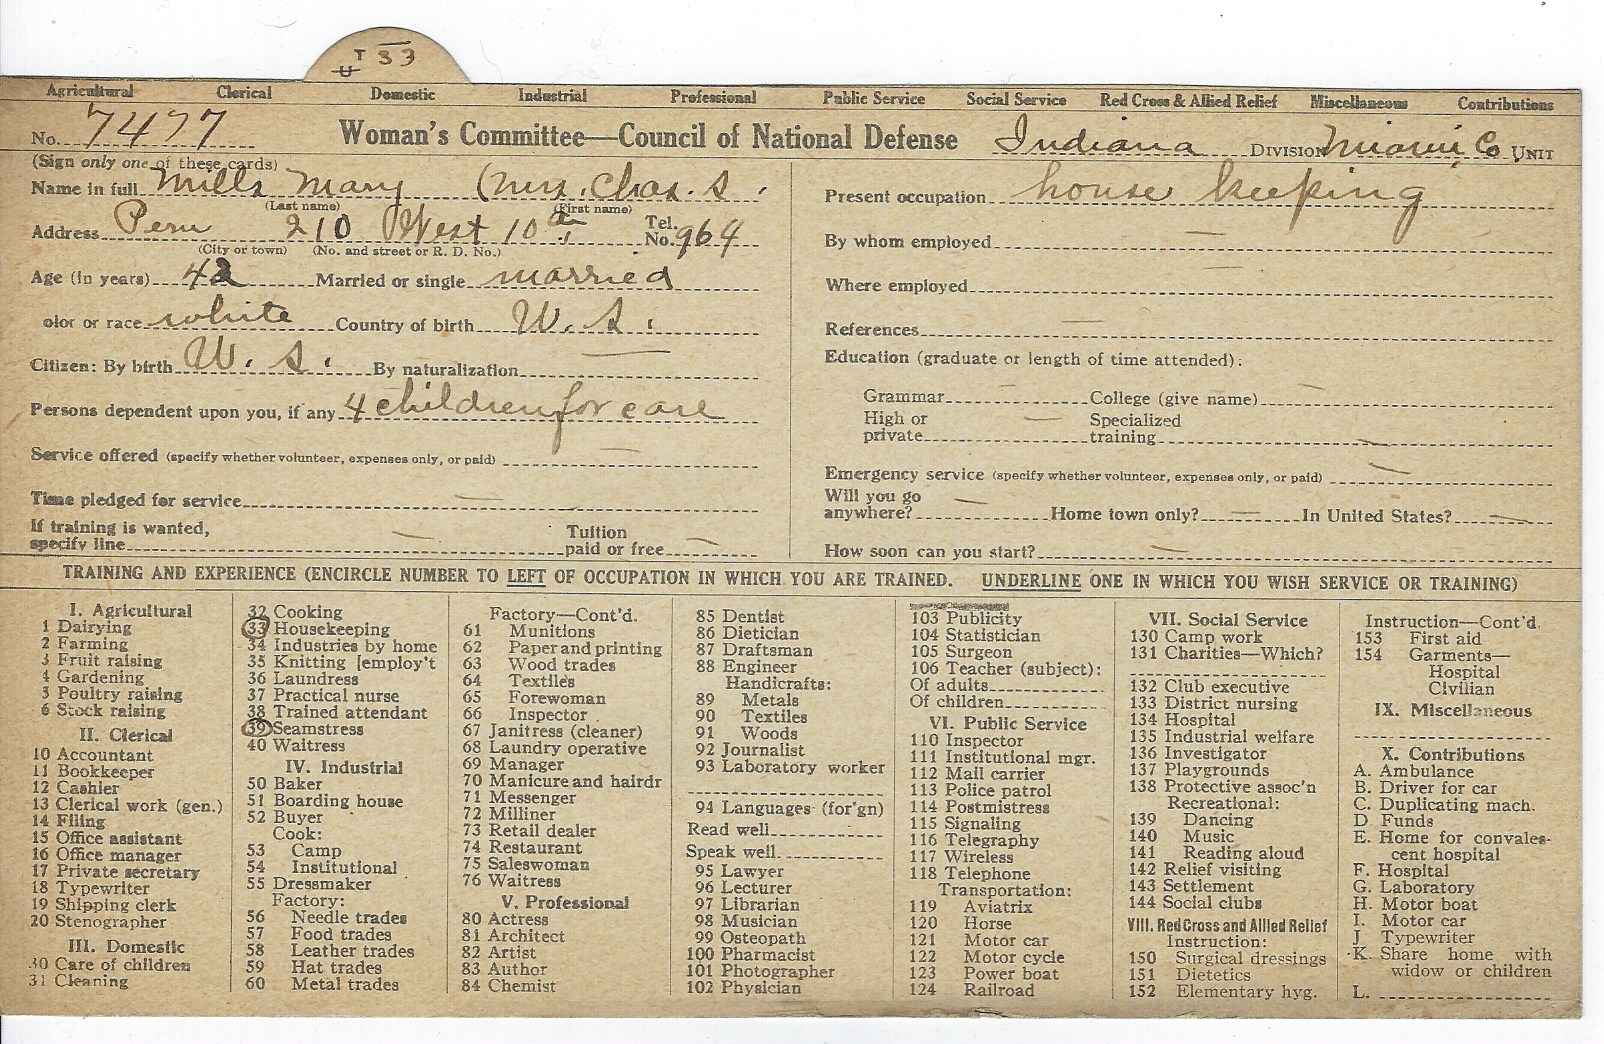 T 33
U
Agricultural Clerical Domestic Industrial Professional Public Service Social Service Red Cross & Allied Relief Miscellaneous Contributions
No. 7477 Woman's Committee—Council of National Defense Indiana DIVISION Miami Co. UNIT
(Sign only one of these cards)
Name in full Mills Mary (Mrs. Chas. S.
(Last name) (First name)
Address Peru 210 West 10th Tel. No. 964
(City or town) (No. and street or R. D. No.)
Age (in years) 42 Married or single married
olor or race white Country of birth U. S.
Citizen: By birth U. S. By naturalization —
Persons dependent upon you, if any 4 children for care
Service offered (specify whether volunteer, expenses only, or paid) —
Time pledged for service —
If training is wanted, specify line — Tuition paid or free —
Present occupation house keeping
By whom employed —
Where employed —
References —
Education (graduate or length of time attended):
Grammar — College (give name) —
High or private — Specialized training —
Emergency service (specify whether volunteer, expenses only, or paid) —
Will you go anywhere? — Home town only? — In United States? —
How soon can you start? —
TRAINING AND EXPERIENCE (ENCIRCLE NUMBER TO LEFT OF OCCUPATION IN WHICH YOU ARE TRAINED. UNDERLINE ONE IN WHICH YOU WISH SERVICE OR TRAINING)
I. Agricultural
1 Dairying
2 Farming
3 Fruit raising
4 Gardening
5 Poultry raising
6 Stock raising
II. Clerical
10 Accountant
11 Bookkeeper
12 Cashier
13 Clerical work (gen.)
14 Filing
15 Office assistant
16 Office manager
17 Private secretary
18 Typewriter
19 Shipping clerk
20 Stenographer
III. Domestic
30 Care of children
31 Cleaning
32 Cooking
33 Housekeeping
34 Industries by home
35 Knitting [employ't
36 Laundress
37 Practical nurse
38 Trained attendant
39 Seamstress
40 Waitress
IV. Industrial
50 Baker
51 Boarding house
52 Buyer
Cook:
53 Camp
54 Institutional
55 Dressmaker
Factory:
56 Needle trades
57 Food trades
58 Leather trades
59 Hat trades
60 Metal trades
Factory—Cont'd.
61 Munitions
62 Paper and printing
63 Wood trades
64 Textiles
65 Forewoman
66 Inspector
67 Janitress (cleaner)
68 Laundry operative
69 Manager
70 Manicure and hairdr
71 Messenger
72 Milliner
73 Retail dealer
74 Restaurant
75 Saleswoman
76 Waitress
V. Professional
80 Actress
81 Architect
82 Artist
83 Author
84 Chemist
85 Dentist
86 Dietician
87 Draftsman
88 Engineer
Handicrafts:
89 Metals
90 Textiles
91 Woods
92 Journalist
93 Laboratory worker
94 Languages (for'gn)
Read well
Speak well
95 Lawyer
96 Lecturer
97 Librarian
98 Musician
99 Osteopath
100 Pharmacist
101 Photographer
102 Physician
103 Publicity
104 Statistician
105 Surgeon
106 Teacher (subject):
Of adults
Of children
VI. Public Service
110 Inspector
111 Institutional mgr.
112 Mail carrier
113 Police patrol
114 Postmistress
115 Signaling
116 Telegraphy
117 Wireless
118 Telephone
Transportation:
119 Aviatrix
120 Horse
121 Motor car
122 Motor cycle
123 Power boat
124 Railroad
VII. Social Service
130 Camp work
131 Charities—Which?
132 Club executive
133 District nursing
134 Hospital
135 Industrial welfare
136 Investigator
137 Playgrounds
138 Protective assoc'n
Recreational:
139 Dancing
140 Music
141 Reading aloud
142 Relief visiting
143 Settlement
144 Social clubs
VIII. Red Cross and Allied Relief
Instruction:
150 Surgical dressings
151 Dietetics
152 Elementary hyg.
Instruction—Cont'd.
153 First aid
154 Garments—
Hospital
Civilian
IX. Miscellaneous
X. Contributions
A. Ambulance
B. Driver for car
C. Duplicating mach.
D. Funds
E. Home for convales-
cent hospital
F. Hospital
G. Laboratory
H. Motor boat
I. Motor car
J Typewriter
K. Share home with
widow or children
L.